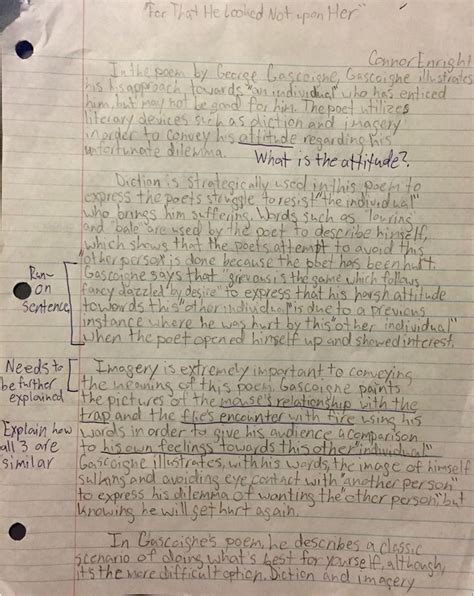 "For That He Looked Not upon Her"
Connor Enright
In the poem by George Gascoigne, Gascoigne illustrates
his approach towards "an individual" who has enticed
him, but may not be good for him. The poet utilizes
literary devices such as diction and imagery
in order to convey his attitude regarding his
unfortunate dilemma.
What is the attitude?
Diction is strategically used in this poem to
express the poets struggle to resist "the individual"
who brings him suffering. Words such as "louring"
and "bale" are used by the poet to describe himself,
which shows that the poets attempt to avoid this
"other person" is done because the poet has been hurt.
Gascoigne says that "grievous is the game which follows
fancy dazzled by desire" to express that his harsh attitude
towards this "other individual" is due to a previous
instance where he was hurt by this "other individual"
when the poet opened himself up and showed interest.
Run-
on
sentence
Imagery is extremely important to conveying
the meaning of this poem. Gascoigne paints
the pictures of the mouse's relationship with the
trap and the flie's encounter with fire using his
words in order to give his audience a comparison
to his own feelings towards this other "individual"
Gascoigne illustrates, with his words, the image of himself
sulking and avoiding eye contact with "another person"
to express his dilemma of wanting the "other person" but
knowing he will get hurt again.
Needs to
be further
explained
Explain how
all 3 are
similar
In Gascoigne's poem, he describes a classic
scenario of doing what's best for yourself, although,
it's the more difficult option. Diction and imagery